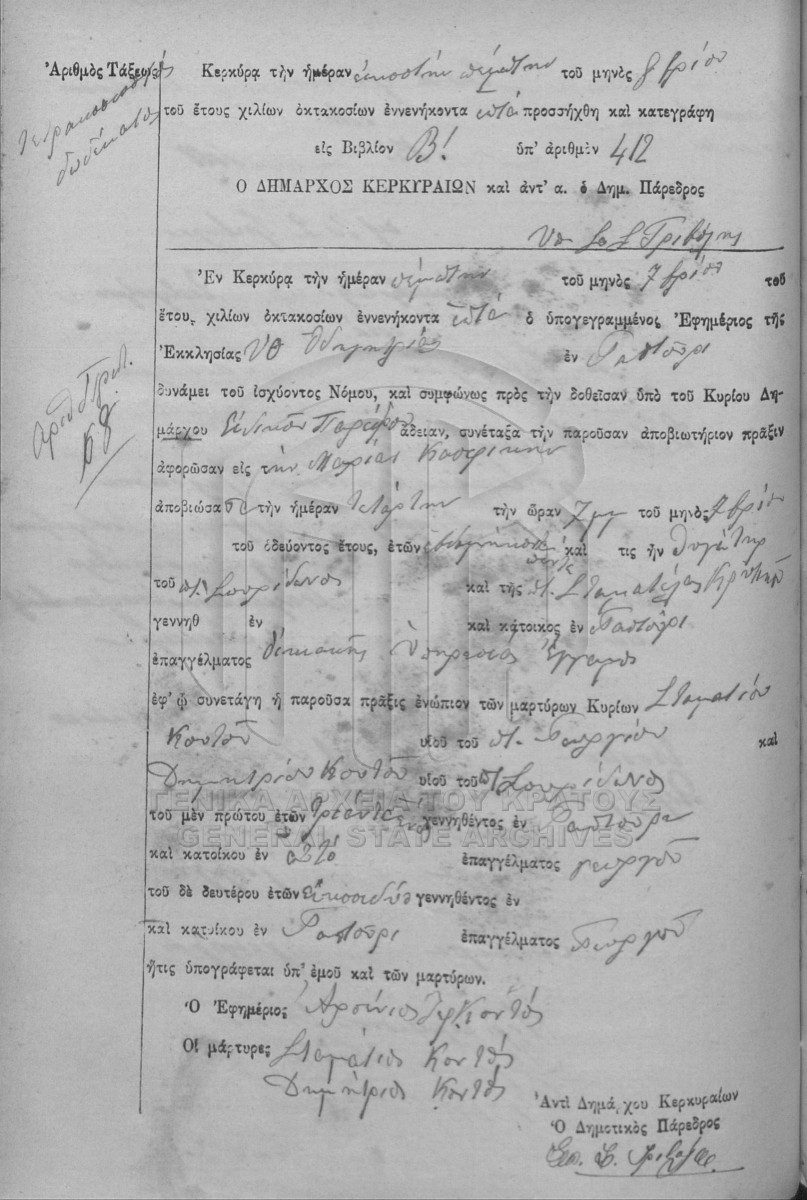 Ἀριθμὸς Τάξεως
τετρακοσιοστός
δωδέκατος
Κερκύρᾳ τὴν ἡμέραν εἰκοστὴν πέμπτην τοῦ μηνὸς
τοῦ ἔτους χιλίων ὀκτακοσίων ἐννενήκοντα ἑπτά προσήχθη καὶ κατεγράφη
εἰς Βιβλίον Β! ὑπ' ἀριθμὸν 412
Ο ΔΗΜΑΡΧΟΣ ΚΕΡΚΥΡΑΙΩΝ καὶ ἀντ' α. ὁ Δημ. Πάρεδρος
Ἐν Κερκύρᾳ τὴν ἡμέραν πέμπτην τοῦ μηνὸς 7βρίου τοῦ
ἔτους χιλίων ὀκτακοσίων ἐννενήκοντα ἑπτά ὁ ὑπογεγραμμένος Ἐφημέριος τῆς
Ἐκκλησίας ΥΘ Ὁδηγητρίας ἐν Γαστούρι
δυνάμει τοῦ ἰσχύοντος Νόμου, καὶ συμφώνως πρὸς τὴν δοθεῖσαν ὑπὸ τοῦ Κυρίου Δη-
μάρχου Εἰδικοῦ Παρέδρου ἄδειαν, συνέταξα τὴν παροῦσαν ἀποβιωτήριον πρᾶξιν
Αριθ Πρωτ.
68
ἀφορῶσαν εἰς τὴν Μαρίαν
ἀποβιώσασα τὴν ἡμέραν τετάρτην τὴν ὥραν 7μμ τοῦ μηνὸς 7βρίου
τοῦ ὁδεύοντος ἔτους, ἐτῶν πέντε καὶ τις ἦν θυγάτηρ
τοῦ π. Σπυρίδωνος καὶ τῆς π. Σταματέλας
γεννηθ ἐν καὶ κάτοικος ἐν Γαστούρι
ἐπαγγέλματος οἰκιακῆς ὑπηρεσίας ἔγγαμος
ἐφ' ᾧ συνετάγη ἡ παροῦσα πρᾶξις ἐνώπιον τῶν μαρτύρων Κυρίων Σταματίου
Κοντοῦ υἱοῦ τοῦ π. Γεωργίου καὶ
Δημητρίου Κοντοῦ υἱοῦ τοῦ π Σπυρίδωνος
ΓΕΝΙΚΑ ΑΡΧΕΙΑ ΤΟΥ ΚΡΑΤΟΥΣ
GENERAL STATE ARCHIVES
τοῦ μὲν πρώτου ἐτῶν τριάντα γεννηθέντος ἐν Γαστούρι
καὶ κατοίκου ἐν αὐτό ἐπαγγέλματος γεωργοῦ
τοῦ δὲ δευτέρου ἐτῶν εἰκοσιδύο γεννηθέντος ἐν
καὶ κατοίκου ἐν Γαστούρι ἐπαγγέλματος Γεωργοῦ
ἥτις ὑπογράφεται ὑπ' ἐμοῦ καὶ τῶν μαρτύρων.
Ὁ Ἐφημέριος Ἀρσένιος Κοντός
Οἱ μάρτυρες Σταμάτιος Κοντός
Δημήτριος Κοντός
Ἀντὶ Δημάρχου Κερκυραίων
Ὁ Δημοτικὸς Πάρεδρος